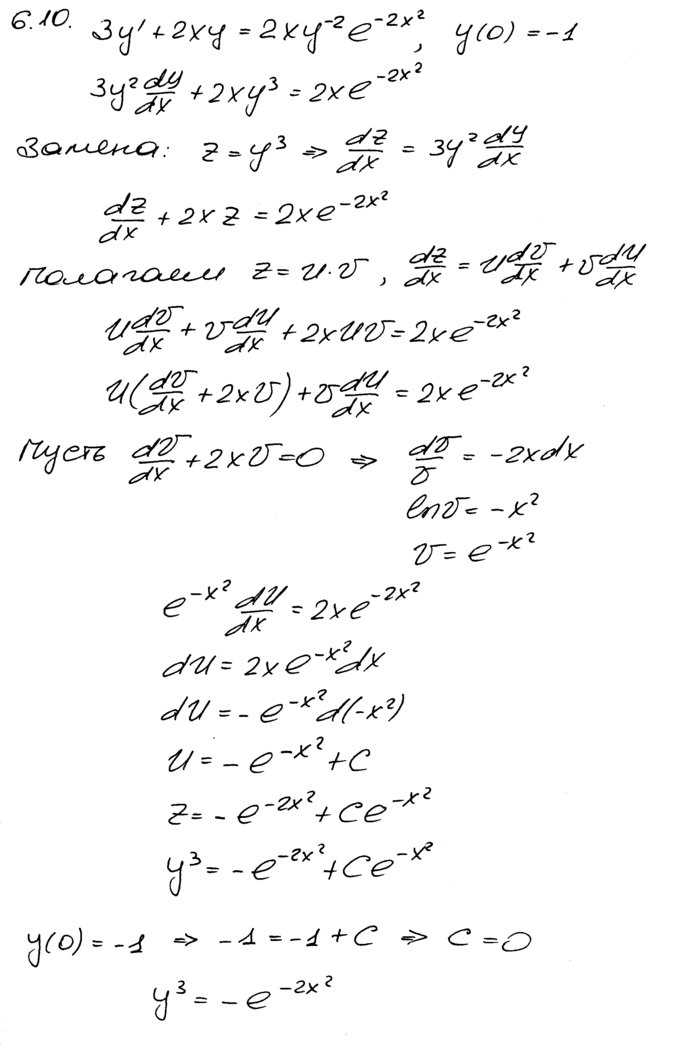 6.10. 3y' + 2xy = 2xy⁻² e^(-2x²), y(0) = -1
3y² dy/dx + 2xy³ = 2xe^(-2x²)
Замена: z = y³ ⇒ dz/dx = 3y² dy/dx
dz/dx + 2xz = 2xe^(-2x²)
Полагаем z = u·v, dz/dx = u dv/dx + v du/dx
u dv/dx + v du/dx + 2xuv = 2xe^(-2x²)
u(dv/dx + 2xv) + v du/dx = 2xe^(-2x²)
Пусть dv/dx + 2xv = 0 ⇒ dv/v = -2xdx
lnv = -x²
v = e^(-x²)
e^(-x²) du/dx = 2xe^(-2x²)
du = 2xe^(-x²)dx
du = -e^(-x²)d(-x²)
u = -e^(-x²) + C
z = -e^(-2x²) + Ce^(-x²)
y³ = -e^(-2x²) + Ce^(-x²)
y(0) = -1 ⇒ -1 = -1 + C ⇒ C = 0
y³ = -e^(-2x²)